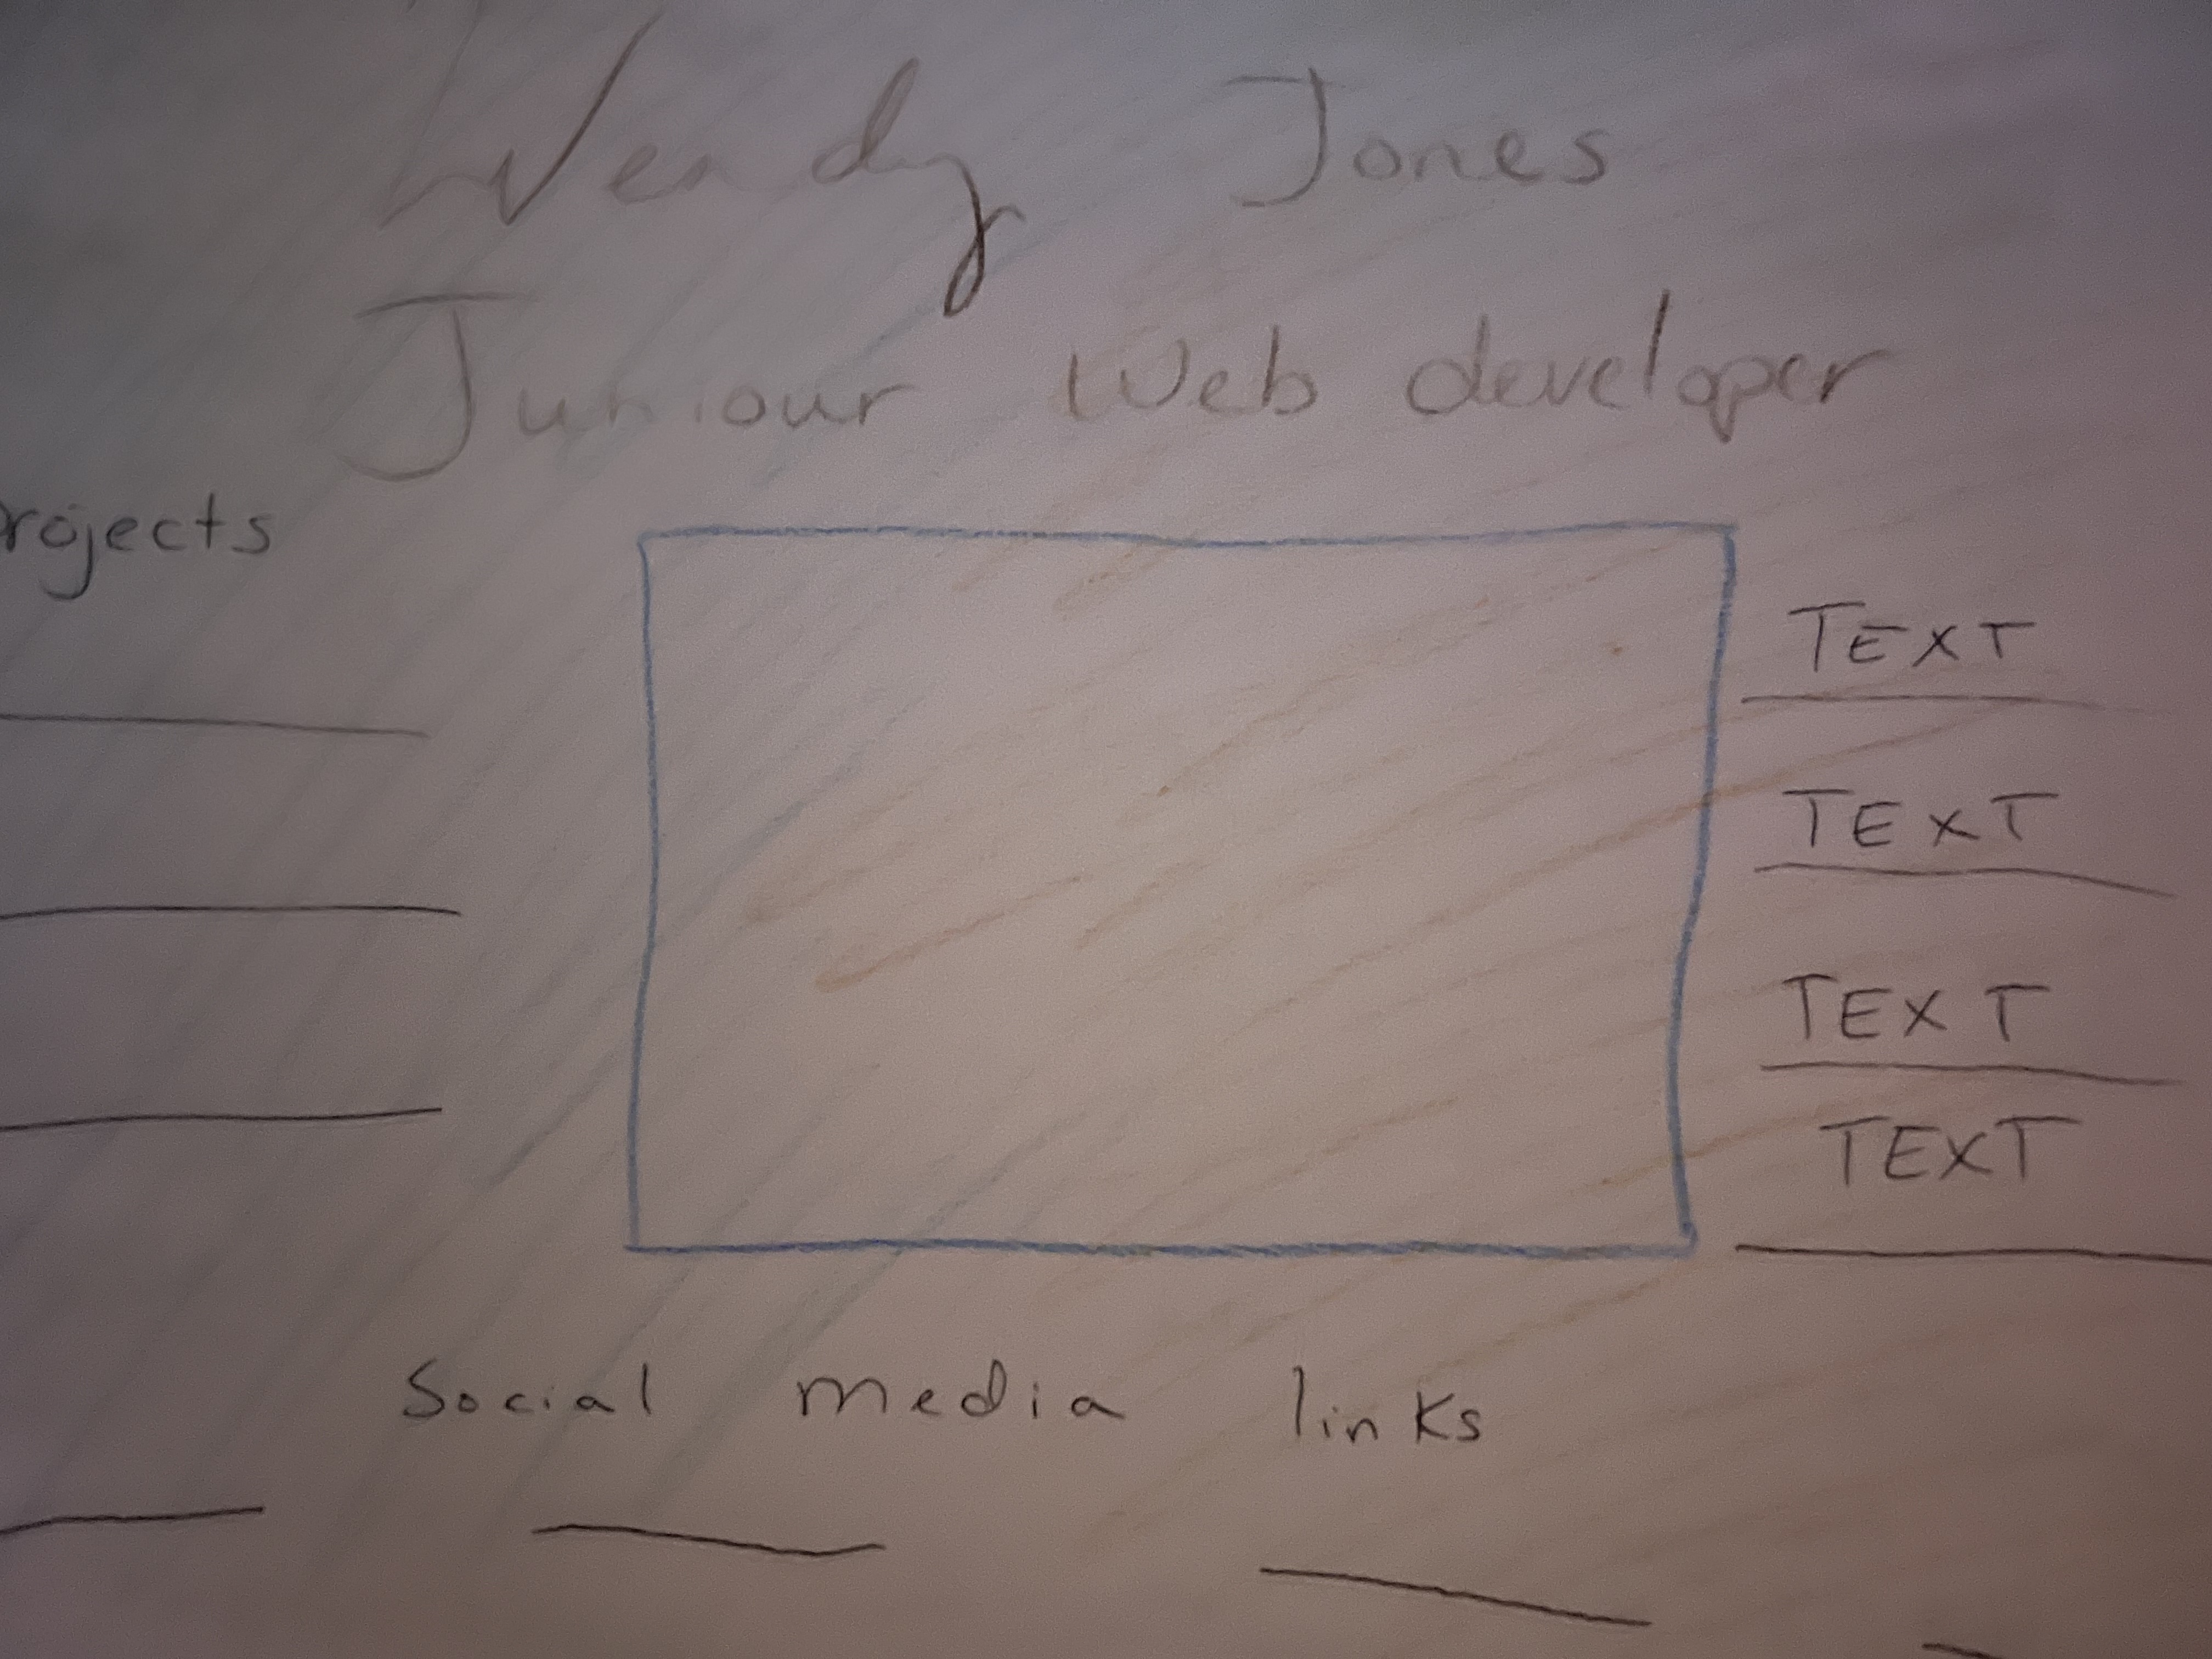 Wendy Jones
Juniour Web developer
rojects
TEXT
TEXT
TEXT
TEXT
Social media links